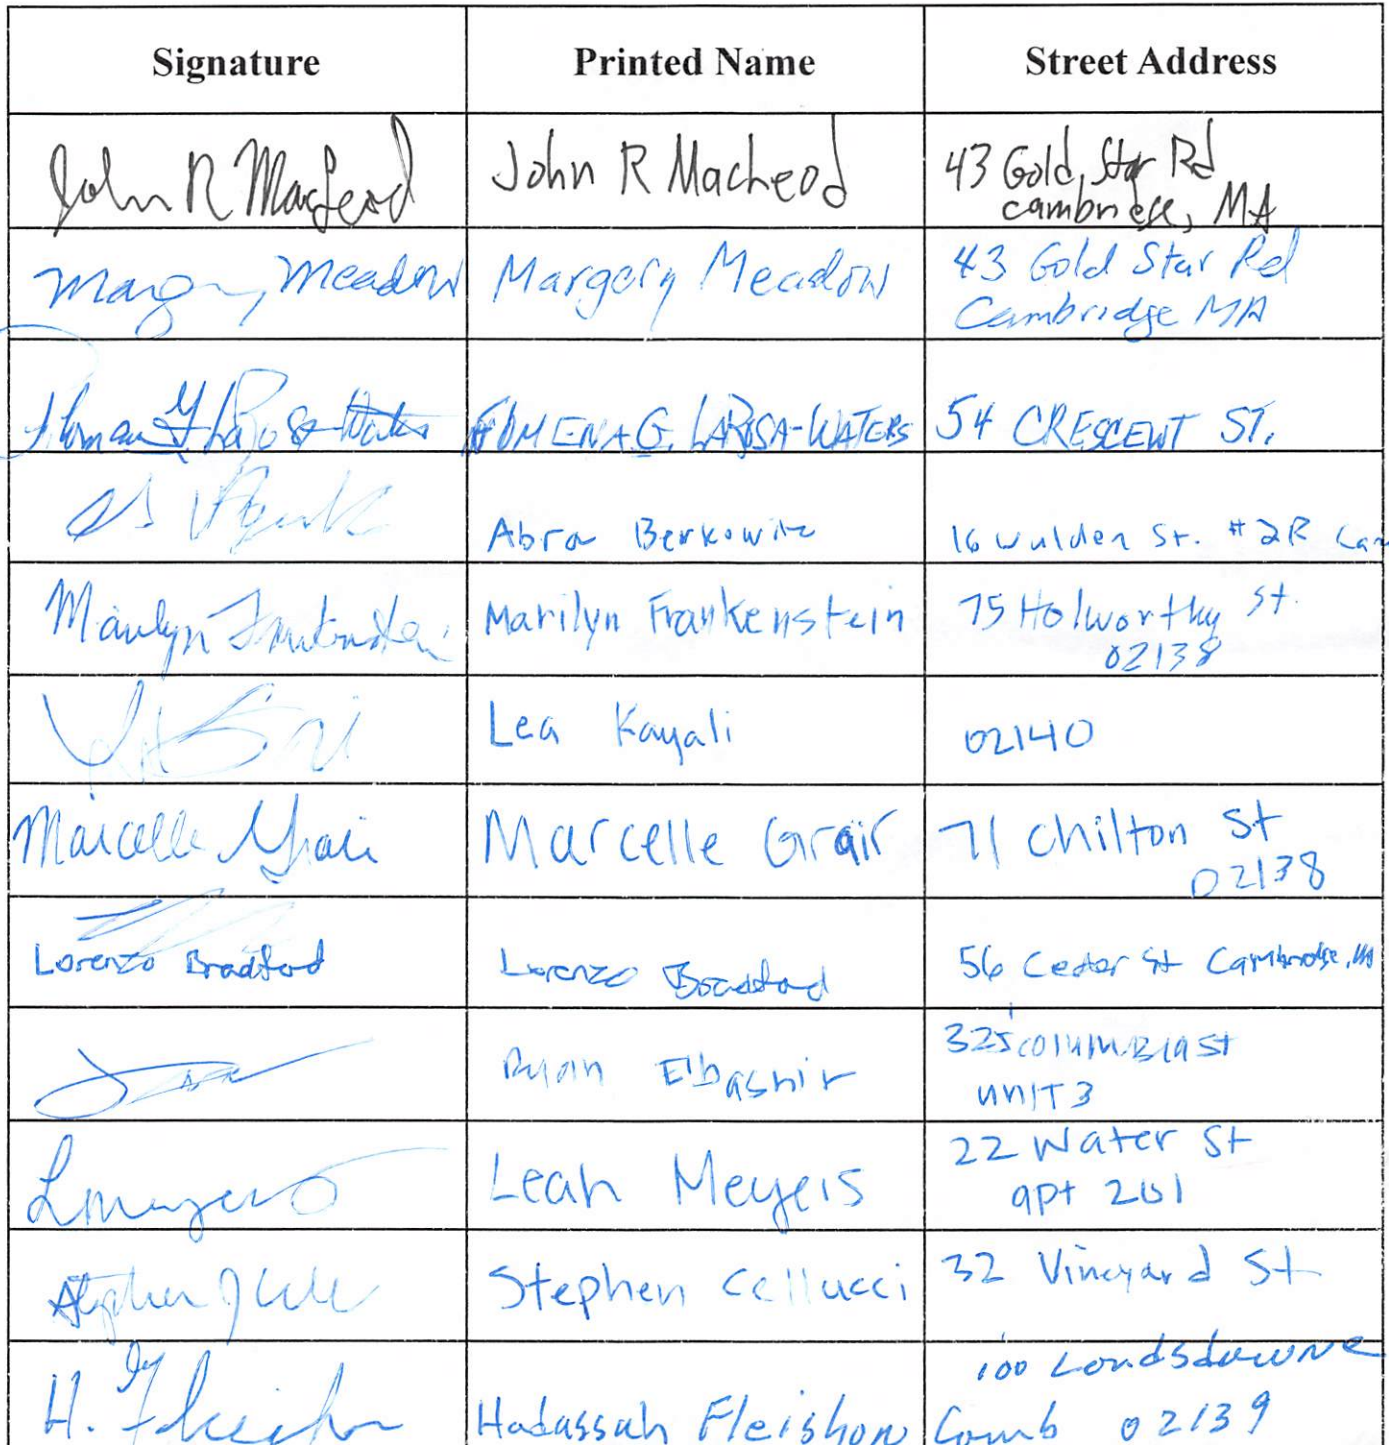 Signature Printed Name Street Address
John R MacLeod John R MacLeod 43 Gold Star Rd
Cambridge, MA
Meadow Margery Meadow 43 Gold Star Rd
Cambridge MA
G. LAROSA-WATERS 54 CRESCENT ST.
Abra Berkowitz 16 Walden St. #2R Cam
Marilyn Marilyn Frankenstein 75 Holworthy St.
02138
Lea Kayali 02140
Marcelle Grair Marcelle Grair 71 Chilton St
02138
Lorenzo Bradford Lorenzo Bradford 56 Cedar St Cambridge, MA
Ryan Elbashir 325 Columbia St
UNIT 3
LMeyers Leah Meyers 22 Water St
apt 201
Stephen J Stephen Cellucci 32 Vineyard St
100 Landsdowne
H. Hadassah Fleishon Camb 02139